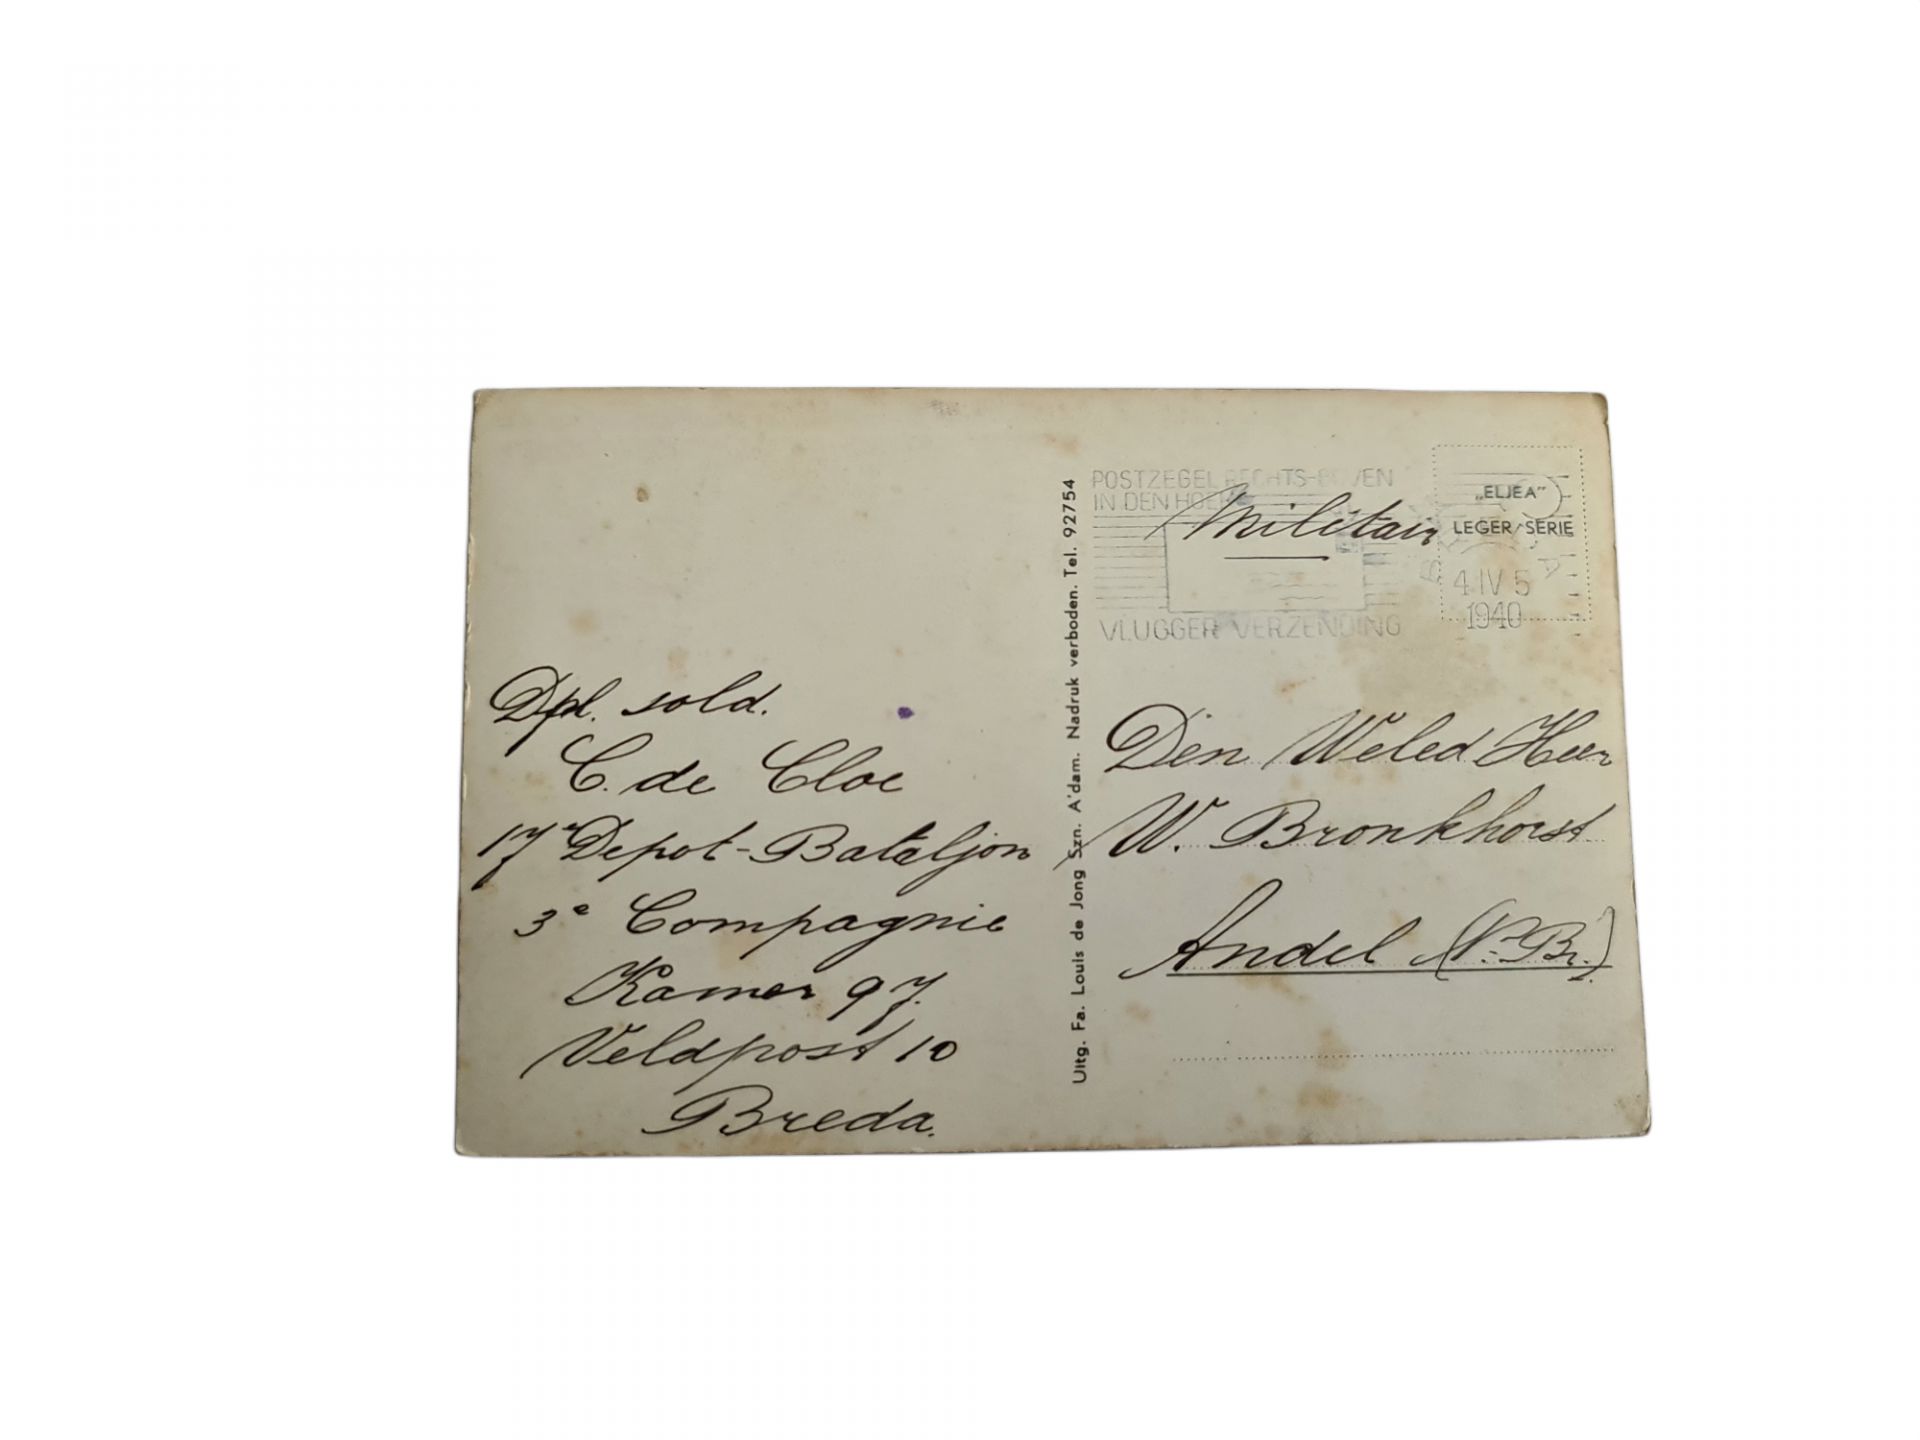 Dpl. sold.
C. de Cloe
17e Depot-Bataljon
3e Compagnie
Kamer 97.
Veldpost 10
Breda.
Uitg. Fa. Louis de Jong Szn. A'dam. Nadruk verboden. Tel. 92754
POSTZEGEL RECHTS-BOVEN
IN DEN HOEK
VLUGGER VERZENDING
Militair
„ELJEA”
LEGER-SERIE
4 IV 5
1940
Den Weled Heer
W. Bronkhorst
Andel (N. Br.)